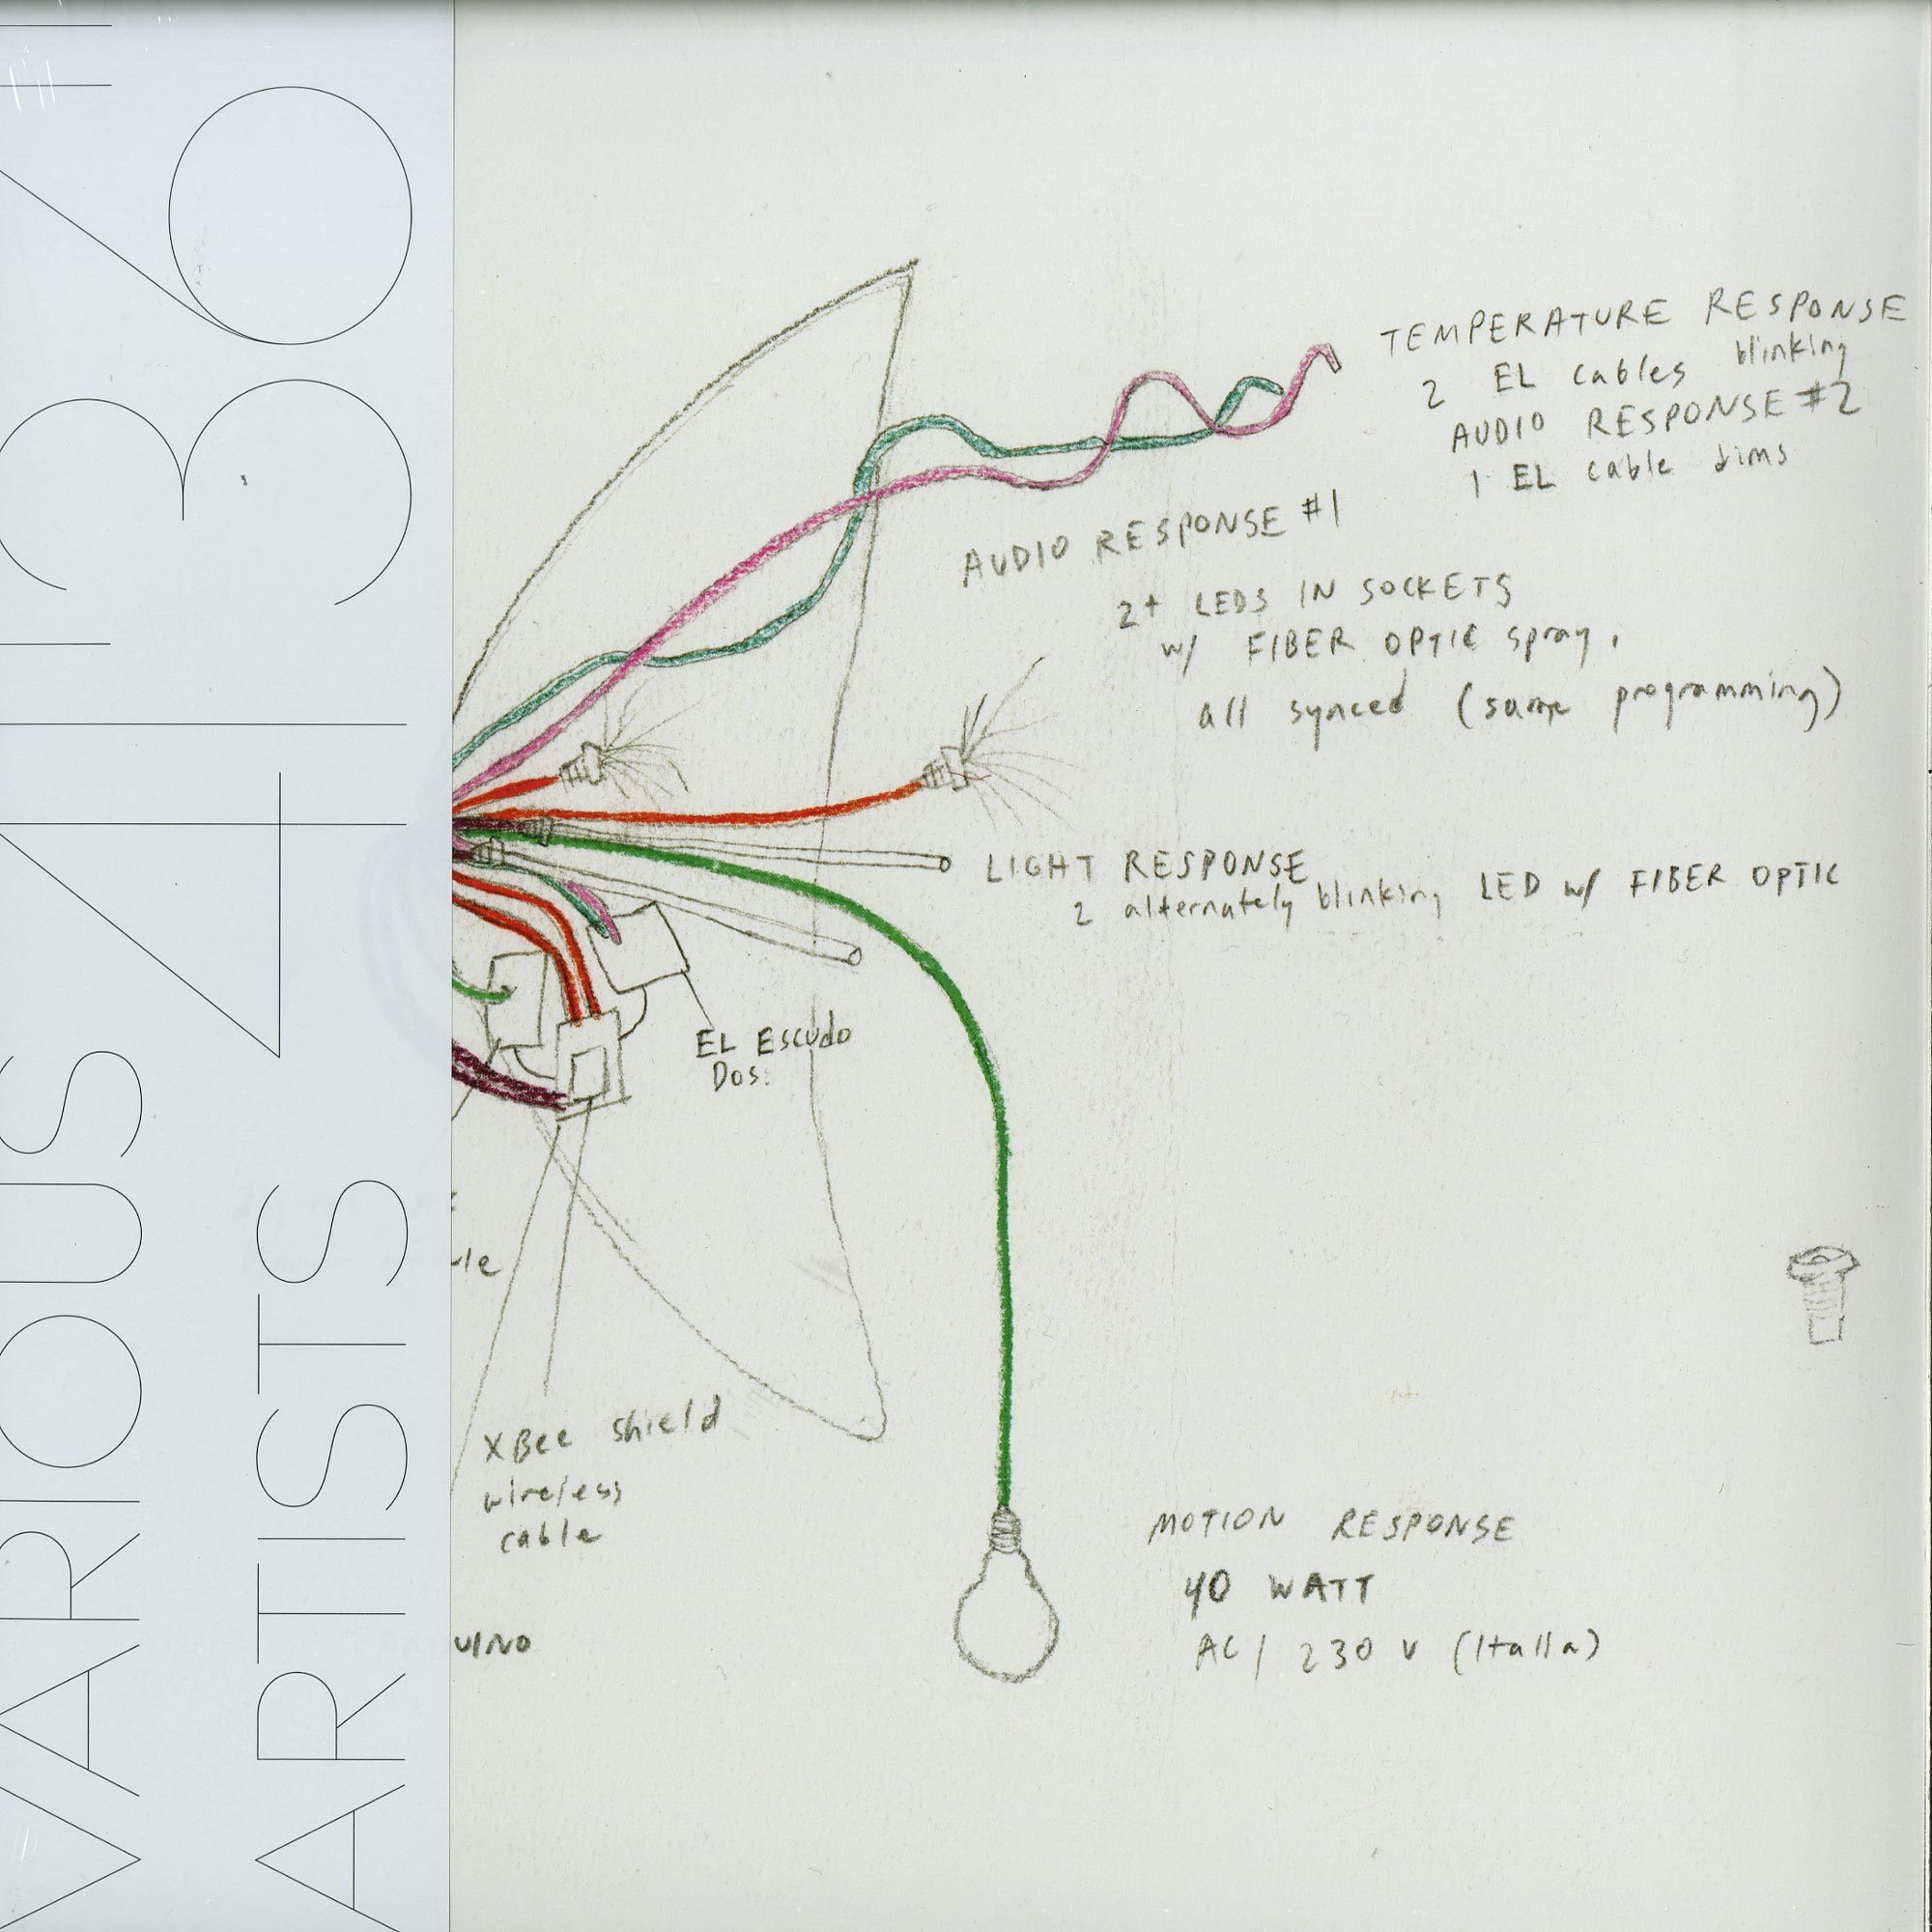 VARIOUS
ARTISTS
4
36
TEMPERATURE RESPONSE
2 EL cables blinking
AUDIO RESPONSE #2
1 EL cable dims
AUDIO RESPONSE #1
2+ LEDS IN SOCKETS
w/ FIBER OPTIC spray,
all synced (same programming)
LIGHT RESPONSE
2 alternately blinking LED w/ FIBER OPTIC
EL Escudo
Dos:
XBee shield
wireless
cable
UINO
MOTION RESPONSE
40 WATT
AC / 230 V (Italia)